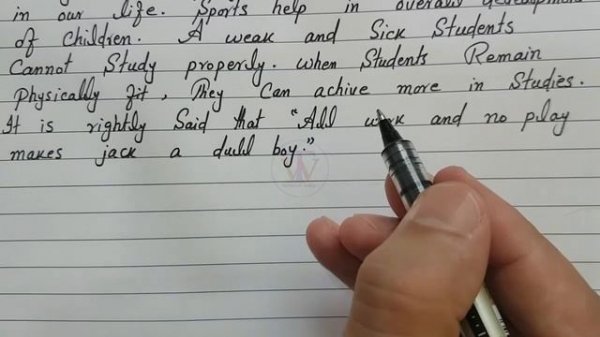 in our life. Sports help in overall development
of children. A weak and Sick Students
Cannot Study properly. when Students Remain
physically fit, They Can achive more in Studies.
It is rightly Said that "All work and no play
makes jack a dull boy."